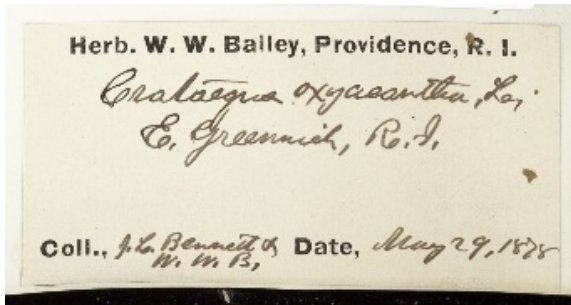 Herb. W. W. Bailey, Providence, R. I.
Crataegus oxyacantha, L.;
E. Greenwich, R.I.
Coll., J. L. Bennett & W. W. B., Date, May 29, 1878